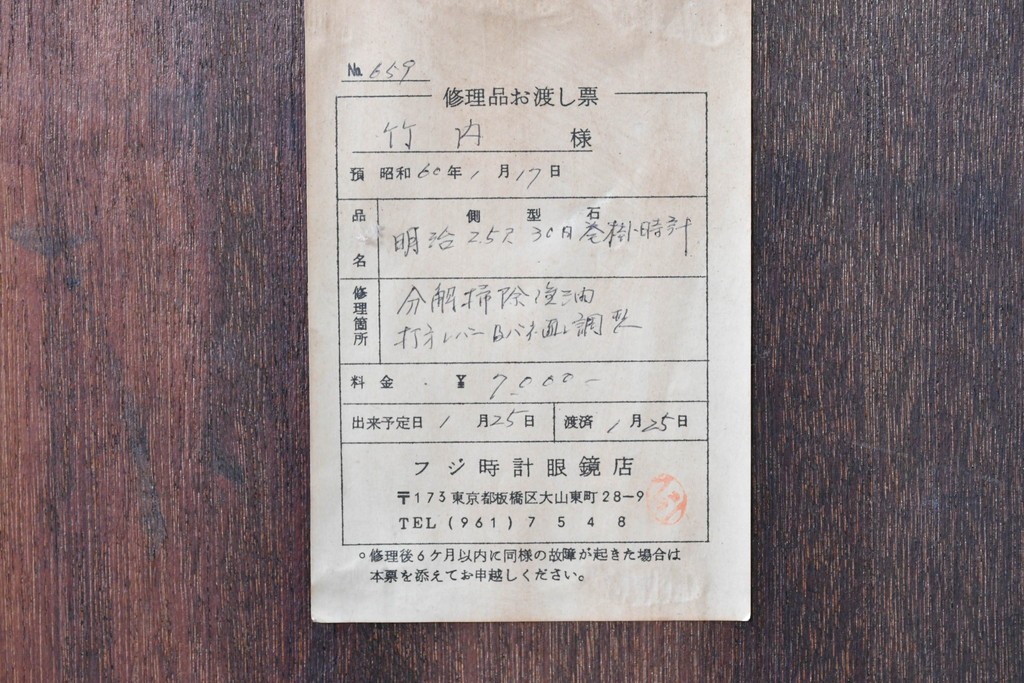 No. 659
修理品お渡し票
竹内 様
預 昭和60年1月17日
品名 側 型 石
明治 30日巻掛時計
修理箇所 分解掃除注油
打方レバー 調整
料金 ¥ 7,000-
出来予定日 1月25日 渡済 1月25日
フジ時計眼鏡店
〒173 東京都板橋区大山東町28-9
TEL (961) 7548
○修理後6ケ月以内に同様の故障が起きた場合は
本票を添えてお申越しください。